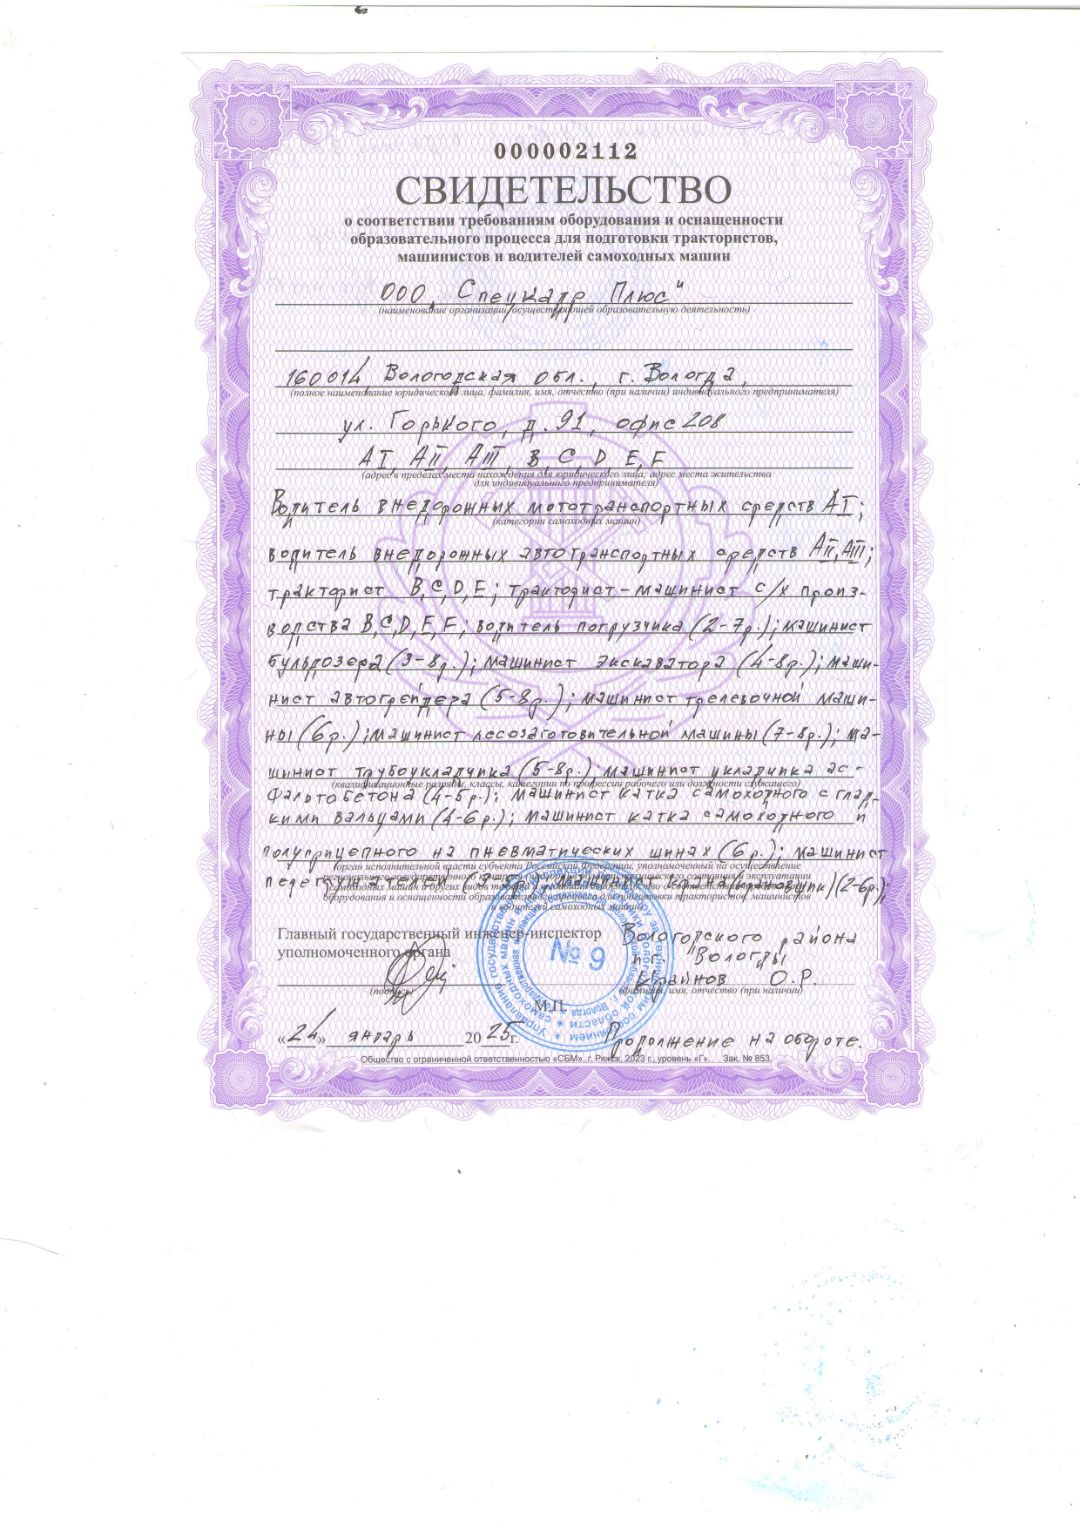 000002112
СВИДЕТЕЛЬСТВО
о соответствии требованиям оборудования и оснащенности
образовательного процесса для подготовки трактористов,
машинистов и водителей самоходных машин
ООО „Спецкадр Плюс"
(наименование организации, осуществляющей образовательную деятельность)
160014, Вологодская обл., г. Вологда,
(полное наименование юридического лица, фамилия, имя, отчество (при наличии) индивидуального предпринимателя)
ул. Горького, д. 91, офис 208
АI, АII, АIII, В, С, D, Е, F
(адрес в пределах места нахождения для юридического лица, адрес места жительства
для индивидуального предпринимателя)
Водитель внедорожных мототранспортных средств АI;
(категории самоходных машин)
водитель внедорожных автотранспортных средств АII, АIII;
тракторист В,С,D,Е; тракторист-машинист с/х произ-
водства В,С,D,Е,F; водитель погрузчика (2-7р.); машинист
бульдозера (3-8р.); машинист экскаватора (4-8р.); маши-
нист автогрейдера (5-8р.); машинист трелевочной маши-
ны (6р.); машинист лесозаготовительной машины (7-8р.); ма-
шинист трубоукладчика (5-8р.), машинист укладчика ас-
(квалификационные разряды, классы, категории по профессии рабочего или должности служащего)
фальтобетона (4-5р.); машинист катка самоходного с глад-
кими вальцами (4-6р.); машинист катка самоходного и
полуприцепного на пневматических шинах (6р.); машинист
(орган исполнительной власти субъекта Российской Федерации, уполномоченный на осуществление
самоходных машин и других видов техники
оборудования и оснащенности образовательного процесса для подготовки трактористов, машинистов
и водителей самоходных машин)
Главный государственный инженер-инспектор
уполномоченного органа
Вологодского района
и г. Вологды
Крайнов О.Р.
(подпись)
(фамилия, имя, отчество (при наличии)
№ 9
М.П.
«24» январь 2025г.
Продолжение на обороте.
Общество с ограниченной ответственностью «СБМ», г. Ряжск, 2023 г., уровень «Г». Зак. № 853.